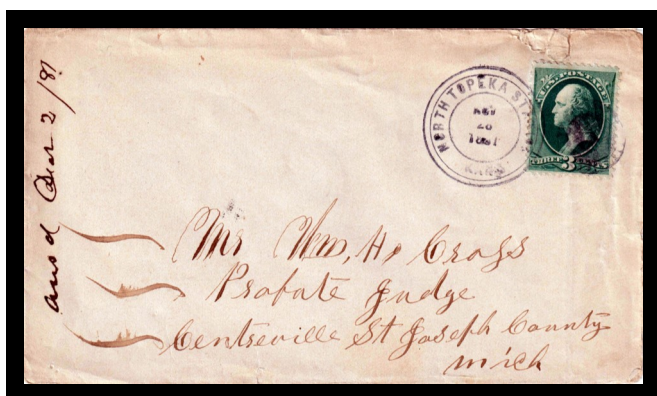 ansd Decr 2/81
NORTH TOPEKA STATION
NOV
28
1881
KANS.
U.S. POSTAGE
THREE 3 CENTS
Mr Wm, H. Cross
Probate Judge
Centreville St Joseph County
Mich